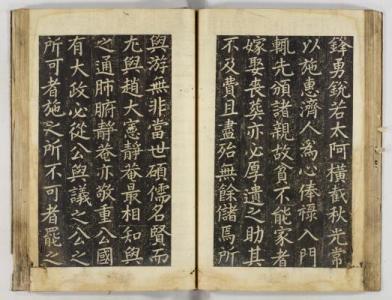 鋒勇銳若太阿橫截秋光常
以施惠濟人為心俸祿入門
輒先頒諸親故貧不能家者
嫁娶喪葬亦必厚遺之助其
不及費且盡殆無餘儲焉所
與游無非當世碩儒名賢而
尤與趙大憲靜菴最相知與
之通肺腑靜菴亦敬重公國
有大政必從公與議之公之
所可者施之所不可者罷之